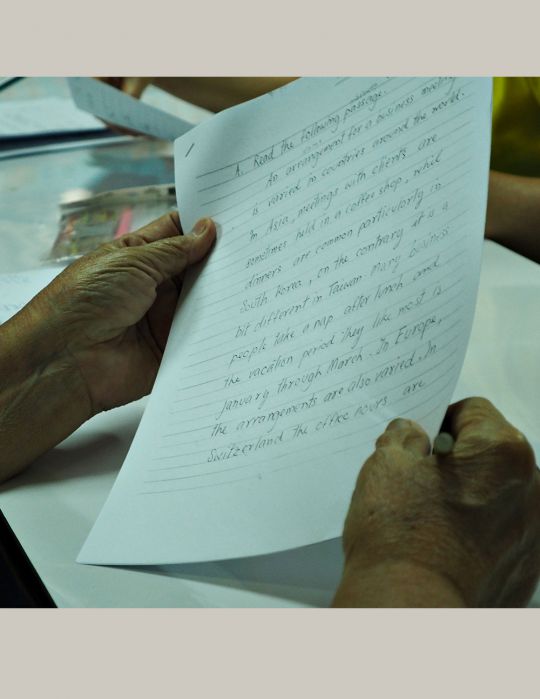 A. Read the following passage.
An arrangement for a business meeting
is varied in countries around the world.
In Asia, meetings with clients are
sometimes held in a coffee shop, while
dinners are common particularly in
South Korea, on the contrary it is a
bit different in Taiwan. Many business
people take a nap after lunch and
the vacation period they like most is
January through March. In Europe,
the arrangements are also varied. In
Switzerland the office hours are